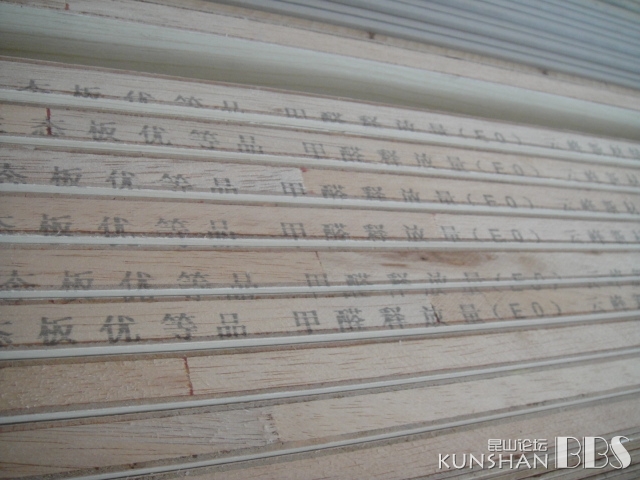 态板优等品 甲醛释放量(E0)
态板优等品 甲醛释放量(E0)
态板优等品 甲醛释放量(E0)
态板优等品 甲醛释放量(E0)
态板优等品 甲醛释放量(E0)
态板优等品 甲醛释放量(E0)
昆山论坛
KUNSHAN BBS